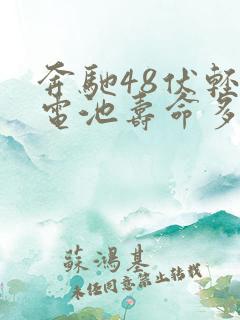 奔馳48伏輕
電池壽命多
蘇鴻基
未經同意禁止轉載